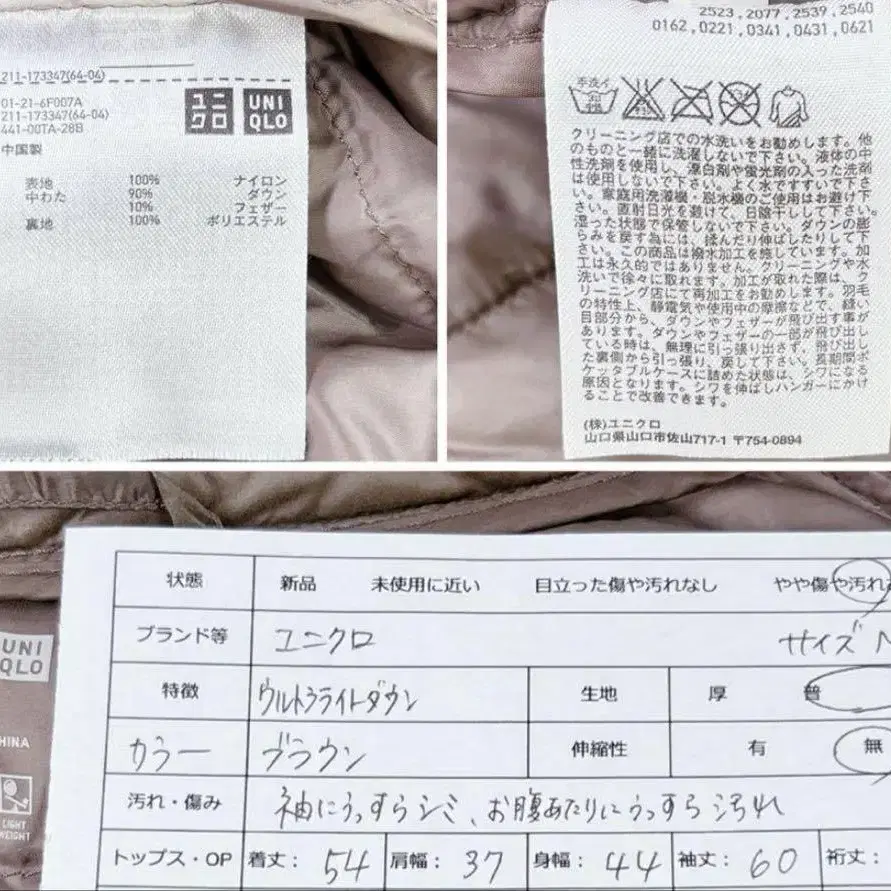 211-173347(64-04)
01-21-6F007A
211-173347(64-04)
441-00TA-28B
ユニクロ
UNIQLO
中国製
表地 100% ナイロン
中わた 90% ダウン
10% フェザー
裏地 100% ポリエステル
2523,2077,2539,2540
0162,0221,0341,0431,0621
手洗イ
クリーニング店での水洗いをお勧めします。他
のものと一緒に洗濯しないで下さい。液体の中
性洗剤を使用し、漂白剤や蛍光剤の入った洗剤
は使用しないで下さい。よく水ですすいで下さ
い。家庭用洗濯機・脱水機のご使用はお避け下
さい。直射日光を避けて、日陰干しして下さい。
湿った状態で保管しないで下さい。ダウンの膨
らみを戻す為には、揉んだり伸ばしたりして下
さい。この商品は撥水加工を施しています。加
工は永久的ではありません。クリーニングや水
洗いで徐々に取れます。加工が取れた際は、ク
リーニング店にて再加工をお勧めします。羽毛
の特性上、静電気や使用中の摩擦などで、縫い
目部分から、ダウンやフェザーが飛び出す事が
あります。ダウンやフェザーの一部が飛び出し
ている時は、無理に引っ張り出さず、飛び出し
た裏側から引っ張り、戻して下さい。長期間ポ
ケッタブルケースに詰めた状態は、シワになる
原因となります。シワを伸ばしハンガーにかけ
ることで改善できます。
(株)ユニクロ
山口県山口市佐山717-1 〒754-0894
UNI
QLO
HINA
LIGHT
WEIGHT
状態 新品 未使用に近い 目立った傷や汚れなし やや傷や汚れ
ブランド等 ユニクロ サイズ
特徴 ウルトラライトダウン 生地 厚 普
カラー ブラウン 伸縮性 有 無
汚れ・傷み 袖にうっすらシミ、お腹あたりにうっすら汚れ
トップス・OP 着丈: 54 肩幅: 37 身幅: 44 袖丈: 60 裄丈: